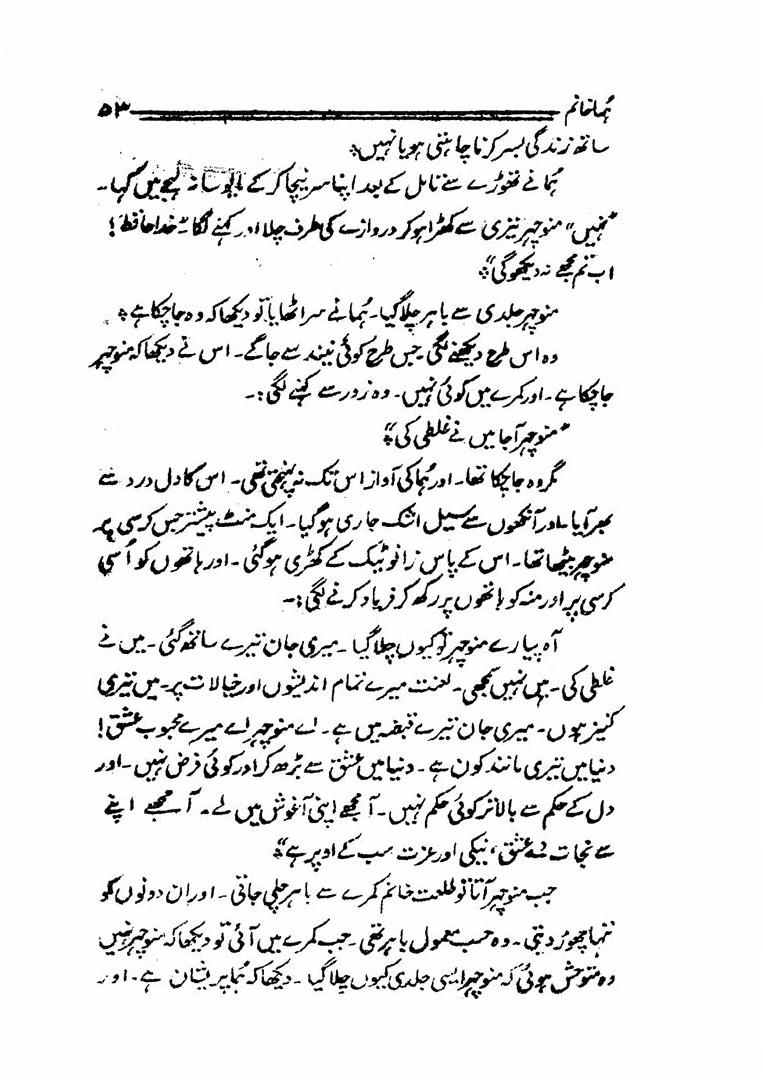 ہما خانم ۵۳
ساتھ زندگی بسر کرنا چاہتی ہو یا نہیں؟
ہما نے تھوڑے سے تامل کے بعد اپنا سر نیچا کر کے مایوسانہ لہجے میں کہا۔
"نہیں" منوچہر تیزی سے کھڑا ہو کر دروازے کی طرف چلا اور کہنے لگا۔ "خدا حافظ!
اب تم مجھے نہ دیکھوگی"۔
منوچہر جلدی سے باہر چلا گیا۔ ہما نے سر اٹھایا تو دیکھا کہ وہ جا چکا ہے۔
وہ اس طرح دیکھنے لگی جس طرح کوئی نیند سے جاگے۔ اس نے دیکھا کہ منوچہر
جا چکا ہے۔ اور کمرے میں کوئی نہیں۔ وہ زور سے کہنے لگی:۔
"منوچہر آ جا میں نے غلطی کی"۔
مگر وہ جا چکا تھا۔ اور ہما کی آواز اس تک نہ پہنچتی تھی۔ اس کا دل درد سے
بھر آیا۔ اور آنکھوں سے سیل اشک جاری ہو گیا۔ ایک منٹ پیشتر جس کرسی پر
منوچہر بیٹھا تھا۔ اس کے پاس زانو ٹیک کے کھڑی ہو گئی۔ اور ہاتھوں کو اُسی
کرسی پر اور منہ کو ہاتھوں پر رکھ کر فریاد کرنے لگی:۔
آہ پیارے منوچہر تو کیوں چلا گیا۔ میری جان تیرے ساتھ گئی۔ میں نے
غلطی کی۔ میں نہیں سمجھی۔ لعنت میرے تمام اندیشوں اور خیالات پر۔ میں تیری
کنیز ہوں۔ میری جان تیرے قبضہ میں ہے۔ اے منوچہر اے میرے محبوب عشق!
دنیا میں تیری مانند کون ہے۔ دنیا میں عشق سے بڑھ کر اور کوئی فرض نہیں۔ اور
دل کے حکم سے بالاتر کوئی حکم نہیں۔ آ مجھے اپنی آغوش میں لے۔ آ مجھے اپنے
سے نجات دے عشق، نیکی اور عزت سب کے اوپر ہے"۔
جب منوچہر آتا تو طلعت خانم کمرے سے باہر چلی جاتی۔ اور ان دونوں کو
تنہا چھوڑ دیتی۔ وہ حسب معمول باہر تھی۔ جب کمرے میں آئی تو دیکھا کہ منوچہر نہیں
وہ متوحش ہوئی کہ منوچہر ایسی جلدی کیوں چلا گیا۔ دیکھا کہ ہما پریشان ہے۔ اور